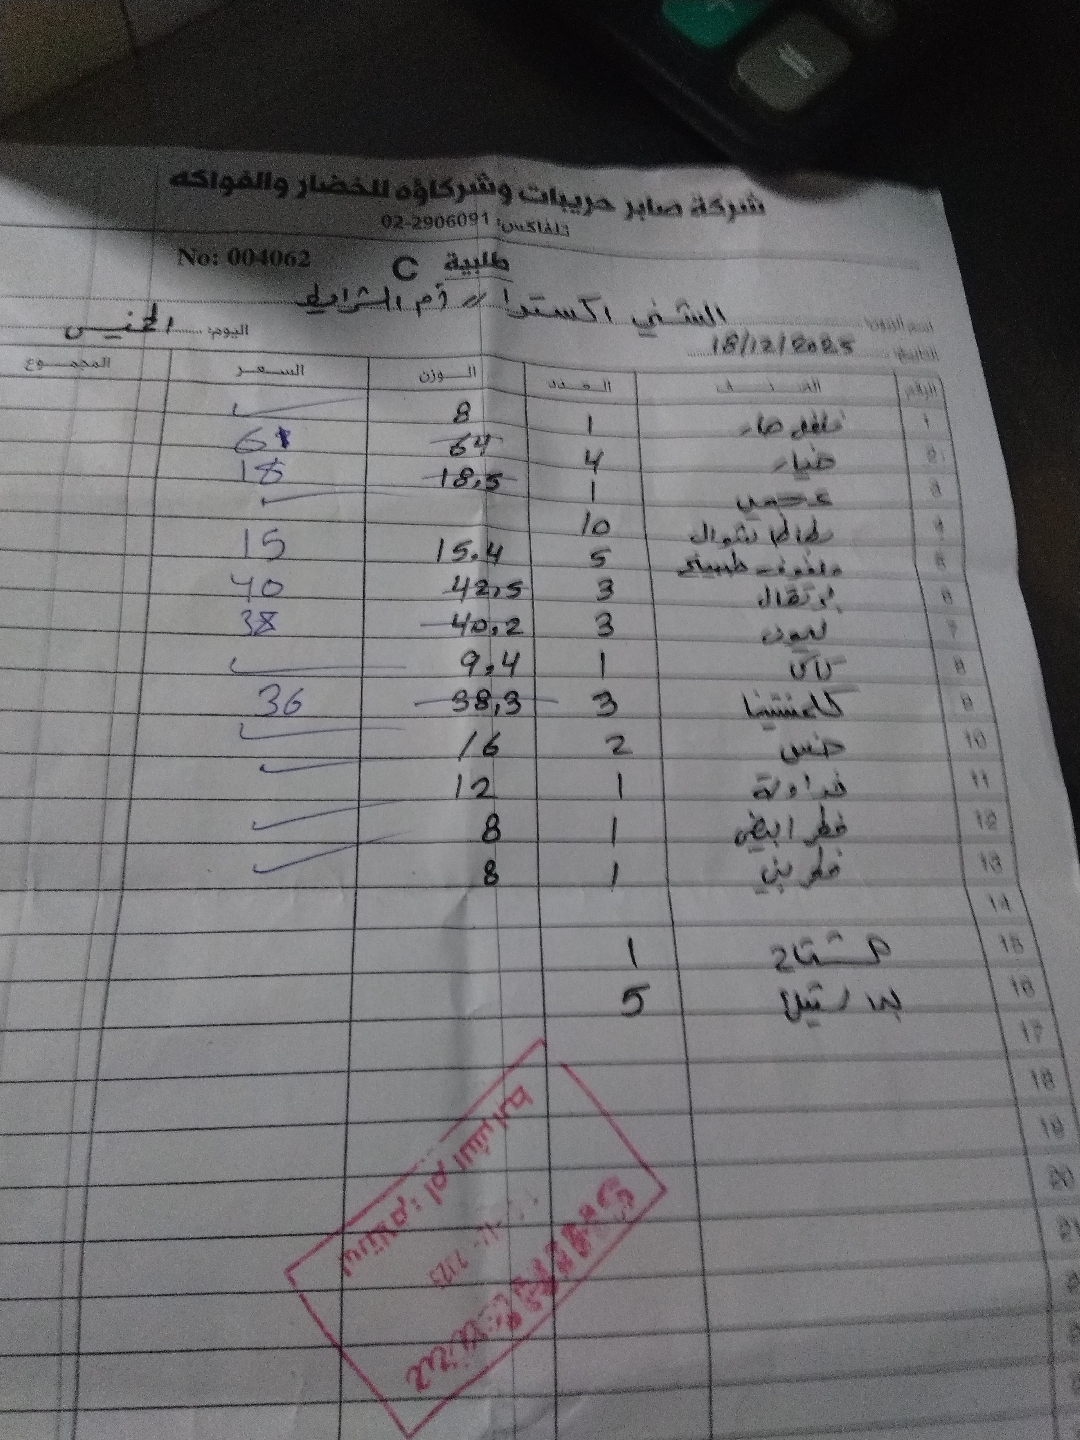 شركة صابر حريبات وشركاؤه للخضار والفواكه
تلفاكس: 02-2906091
No: 004062 طلبية C
اسم الزبون: الشني اكسترا // أم الشرايط
التاريخ: 18/12/2025 اليوم: الخميس
الرقم الصنف العدد الوزن السعر المجموع
1 فلفل حار 1 8 ✓
2 خيار 4 64 61
3 عجمي 1 18,5 18
4 بطاطا شوال 10 ✓
5 ملفوف طبيعي 5 15.4 15
6 برتقال 3 42,5 40
7 ليمون 3 40,2 38
8 كاكا 1 9,4 ✓
9 كلمنتينا 3 38,3 36
10 خس 2 16 ✓
11 فراولة 1 12 ✓
12 فطر ابيض 1 8 ✓
13 فطر بني 1 8 ✓
14
15 مشتاح 1
16 5
17
18
19
20
استلام: ام الشرايط